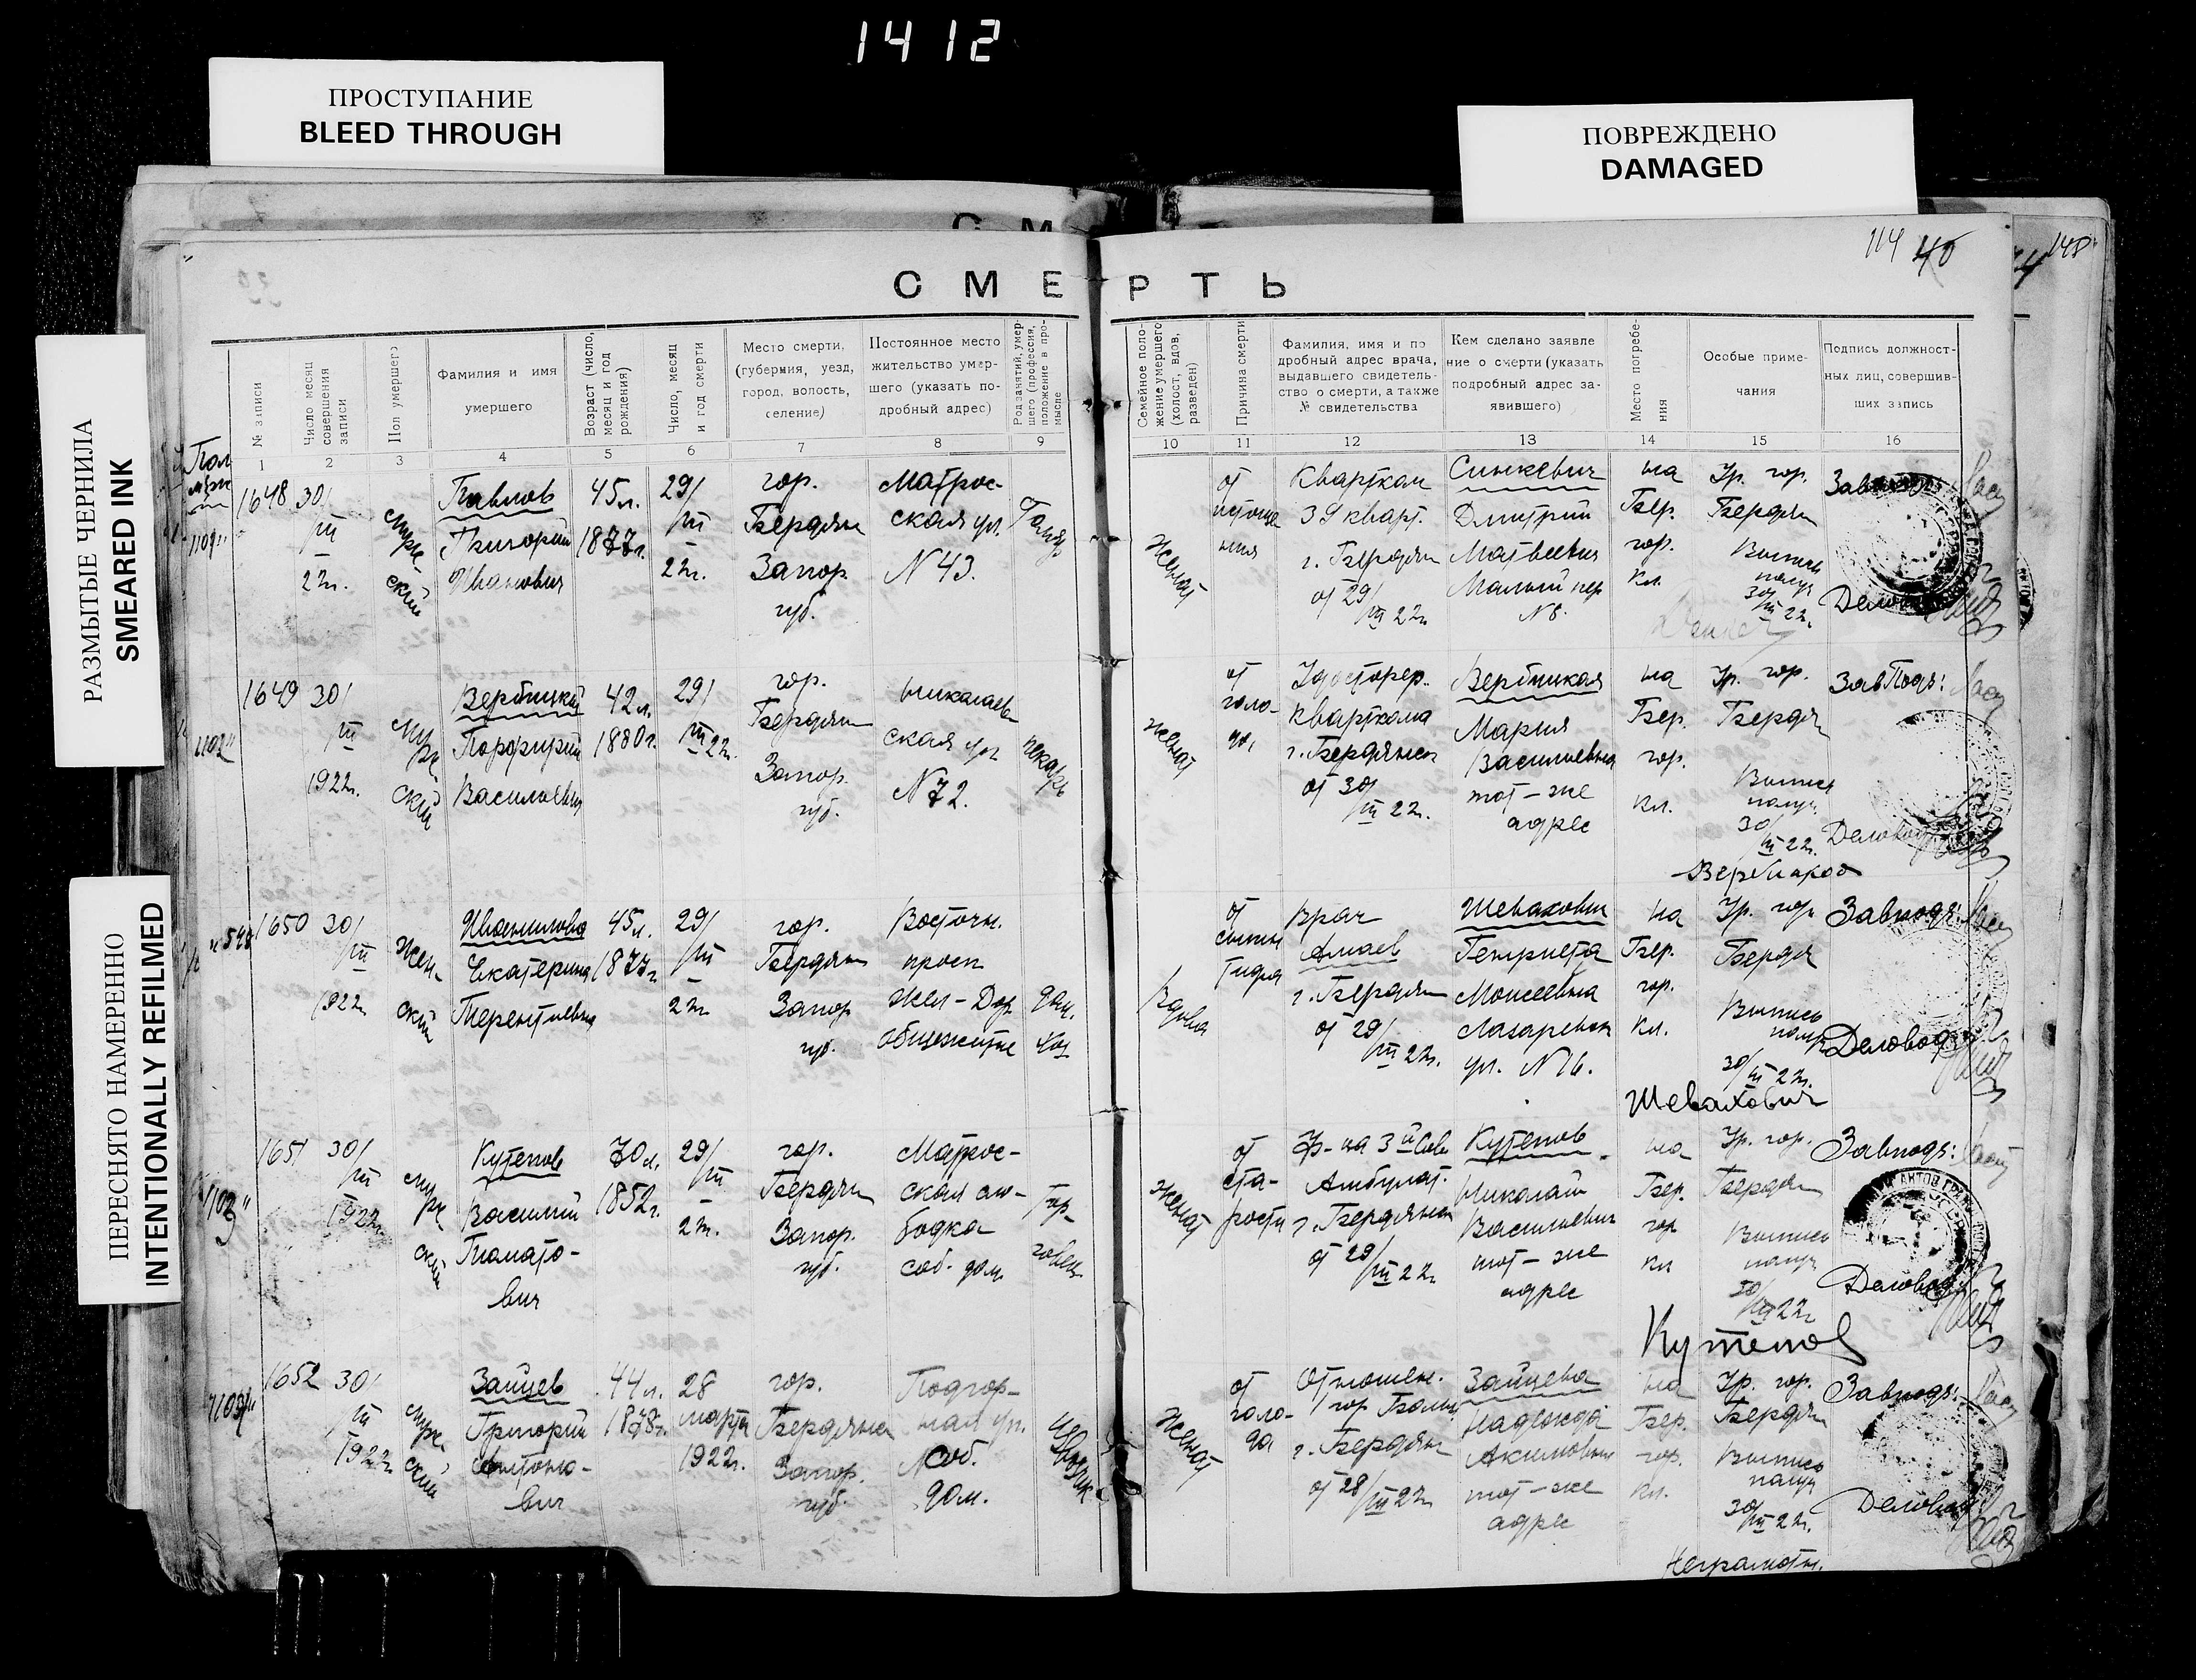 1412
ПРОСТУПАНИЕ
BLEED THROUGH
ПОВРЕЖДЕНО
DAMAGED
РАЗМЫТЫЕ ЧЕРНИЛА
SMEARED INK
ПЕРЕСНЯТО НАМЕРЕННО
INTENTIONALLY REFILMED
114
148
СМЕРТЬ
№ записи
Число месяц совершения записи
Пол умершего
Фамилия и имя умершего
Возраст (число, месяц и год рождения)
Число, месяц и год смерти
Место смерти, (губерния, уезд, город, волость, селение)
Постоянное место жительство умершего (указать подробный адрес)
Род занятий, умершего (профессия, положение в промысле
Семейное положение умершего (холост, вдов, разведен)
Причина смерти
Фамилия, имя и подробный адрес врача, выдавшего свидетельство о смерти, а также № свидетельства
Кем сделано заявление о смерти (указать подробный адрес заявившего)
Место погребения
Особые примечания
Подпись должностных лиц, совершивших запись
1 2 3 4 5 6 7 8 9 10 11 12 13 14 15 16
1648 30/III 22г.
мужской
Павлов
Григорий
Иванович
45 л.
1877г.
29/III 22г.
гор.
Бердян
Запор.
губ.
Матросская ул.
N 43.
Женат
от
истощения
Кварткам
39 кварт.
г. Бердян
от 29/III 22г.
Синкевич
Дмитрий
Матвеевич
Малый пер
N 8.
на
Бер.
гор.
кл.
Гр. гор.
Бердян
Выпись
получ
30/III 22г.
Завподъ
Деловод
1102
1649 30/III 1922г.
мужской
Вербицкий
Порфирий
Васильевич
42 л.
1880г.
29/III 22г.
гор.
Бердян
Запор.
губ.
Николаевская ул
N 72.
пекарь
женат
от
голода
Удостовер.
кварткома
г. Бердянск
от 30/III 22г.
Вербицкая
Мария
Васильевна
тот-же
адрес
на
Бер.
гор.
кл.
Гр. гор.
Бердян
Выпись
получ
30/III 22г.
ЗавПодъ:
Деловод
548
1650 30/III 1922
Женский
Иванилова
Екатерина
Терентьевна
45 л.
1877г
29/III 22г
гор.
Бердян
Запор
губ.
Восточн.
просп
Жел-Дор
общежитие
дом.
хоз
Вдова
от
сыпн
тифа
врач
Алиаев
г. Бердян
от 29/III 22г.
Шевахович
Генриета
Моисеевна
Лазаревск
ул. N 16.
на
Бер.
гор.
кл.
Гр. гор
Бердя
Выпись
получ
30/III 22г.
Завподъ:
Деловод
Шевахович
1103
1651 30/III 1922г.
мужский
Кутепов
Василий
70 л.
1852г.
29/III 22г.
гор.
Бердян
Запор.
губ.
Матросская слободка
соб. дом
торговец
женат
от
старости
Амбулат.
г. Бердянск
от 29/III 22г
Кутепов
Николай
Васильевич
тот-же
адрес
на
Бер.
гор
кл
Гр. гор.
Бердян
Выпись
получ
30/III 22г
Завподъ:
Деловод
Кутепов
1652 30/III 1922г
мужский
Зайцев
Григорий
Антонович
44 л.
1878г.
28
марта
1922г.
гор.
Бердянск
Запор.
губ.
Подгорная ул.
Соб.
дом.
женат
от
голода
Отношен.
гор Больн
г. Бердян
от 28/III 22г
Зайцева
Надежда
Акимовна
тот-же
адрес
на
Бер.
гор.
кл.
Гр. гор.
Бердян
Выпись
получ
30/III 22г.
Завподъ:
Деловод
Неграмотн.